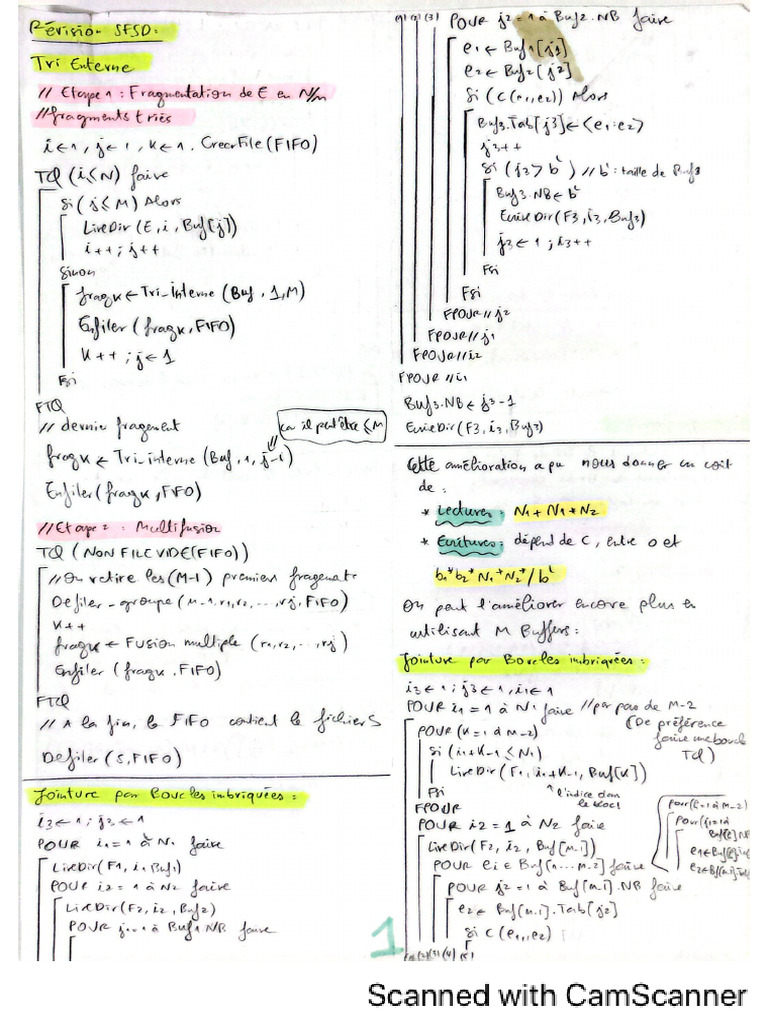 Révision SFSD:
Tri Externe
// Etape 1 : Fragmentation de E en N/M
// fragments triés
i←1, j←1, k←1. CreerFile(FIFO)
TQ (i≤N) faire
Si (j≤M) Alors
LireDir (E, i, Buf[j])
i++; j++
Sinon
fragk ← Tri-Interne (Buf, 1, M)
Enfiler (fragk, FIFO)
k++; j←1
Fsi
FTQ
// dernier fragement
car il peut être ≤ M
fragk ← Tri-interne (Buf, 1, j-1)
Enfiler (fragk, FIFO)
// Etape 2 : Multifusion
TQ (NON FILEVIDE(FIFO))
// On retire les (M-1) premiers fragments
Defiler-groupe (M-1, r1, r2, ..., rj, FIFO)
k++
fragk ← Fusion multiple (r1, r2, ..., rj)
Enfiler (fragk, FIFO)
FTQ
// A la fin, la FIFO contient le fichier S
Defiler (S, FIFO)
Jointure par Boucles imbriquées :
i3←1 ; j3←1
POUR i1 = 1 à N1 faire
LireDir (F1, i1, Buf1)
POUR i2 = 1 à N2 faire
LireDir (F2, i2, Buf2)
POUR j1=1 à Buf1.NB faire
(1) (2) (3) POUR j2 = 1 à Buf2.NB faire
e1 ← Buf1[j1]
e2 ← Buf2[j2]
Si (C(e1, e2)) Alors
Buf3.Tab[j3] ← <e1:e2>
j3++
Si (j3 > b') // b' : taille de Buf3
Buf3.NB ← b'
EcrireDir (F3, i3, Buf3)
j3←1 ; i3++
Fsi
Fsi
FPOUR // j2
FPOUR // j1
FPOUR // i2
FPOUR // i1
Buf3.NB ← j3-1
EcrireDir (F3, i3, Buf3)
Cette amélioration a pu nous donner un coût
de :
* Lectures : N1 + N1 * N2
* Ecritures : dépend de C, entre 0 et
b1*b2*N1*N2*/b'
On peut l'améliorer encore plus en
utilisant M Buffers :
Jointure par Boucles imbriquées :
i3←1 ; j3←1, i1←1
POUR i1 = 1 à N1 faire // par pas de M-2
(De préférence
faire une boucle
TQ)
POUR (k=1 à M-2)
Si (i1+k-1 ≤ N1)
LireDir (F1, i1+k-1, Buf[k])
Fsi
FPOUR
l'indice dans
le bloc
POUR i2 = 1 à N2 faire
LireDir (F2, i2, Buf[M-1])
POUR e1 ∈ Buf[1...M-2] faire
POUR j2 = 1 à Buf[M-1].NB faire
e2 ← Buf[M-1].Tab[j2]
Si C(e1, e2)
Pour (l=1 à M-2)
Pour (j1=1 à
(1) (2) (3) (4) (5)
1
Scanned with CamScanner